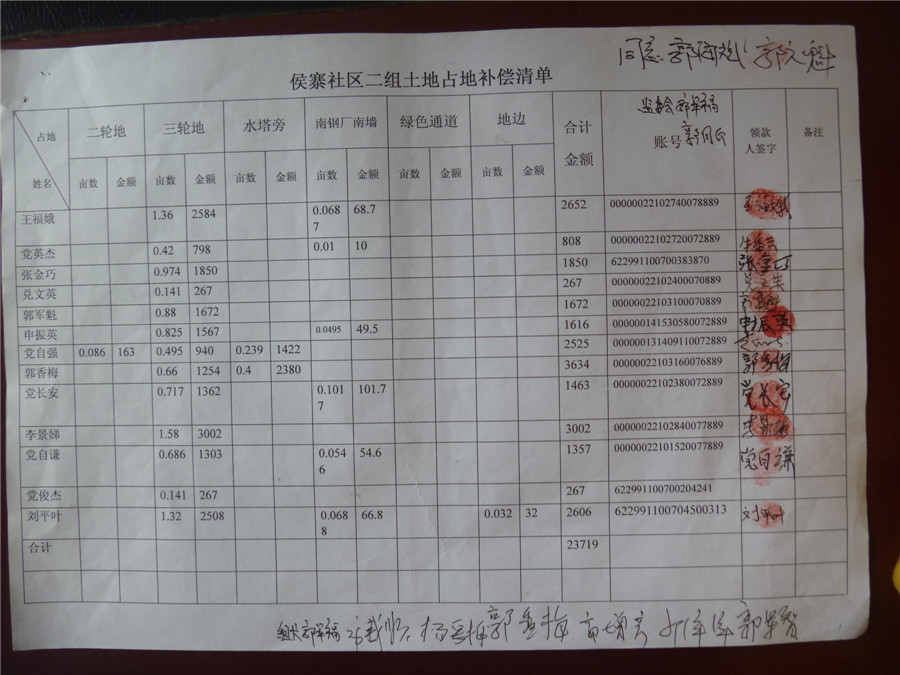 同意
侯寨社区二组土地占地补偿清单
占地 二轮地 三轮地 水塔旁 南钢厂南墙 绿色通道 地边 合计金额 账号 领款人签字 备注
姓名 亩数 金额 亩数 金额 亩数 金额 亩数 金额 亩数 金额 亩数 金额
王福娥 1.36 2584 0.0687 68.7 2652 00000022102740078889
党英杰 0.42 798 0.01 10 808 00000022102720072889
张金巧 0.974 1850 1850 622991100700383870 张金巧
兑文英 0.141 267 267 00000022102400070889
郭军魁 0.88 1672 1672 00000022103100070889
申振英 0.825 1567 0.0495 49.5 1616 000000141530580072889
党自强 0.086 163 0.495 940 0.239 1422 2525 000000131409110072889
郭香梅 0.66 1254 0.4 2380 3634 00000022103160076889 郭香梅
党长安 0.717 1362 0.1017 101.7 1463 00000022102380072889 党长安
李景娣 1.58 3002 3002 00000022102840077889
党自谦 0.686 1303 0.0546 54.6 1357 00000022101520077889 党自谦
党俊杰 0.141 267 267 622991100700204241
刘平叶 1.32 2508 0.0688 66.8 0.032 32 2606 6229911007045003​13 刘平叶
合计 23719